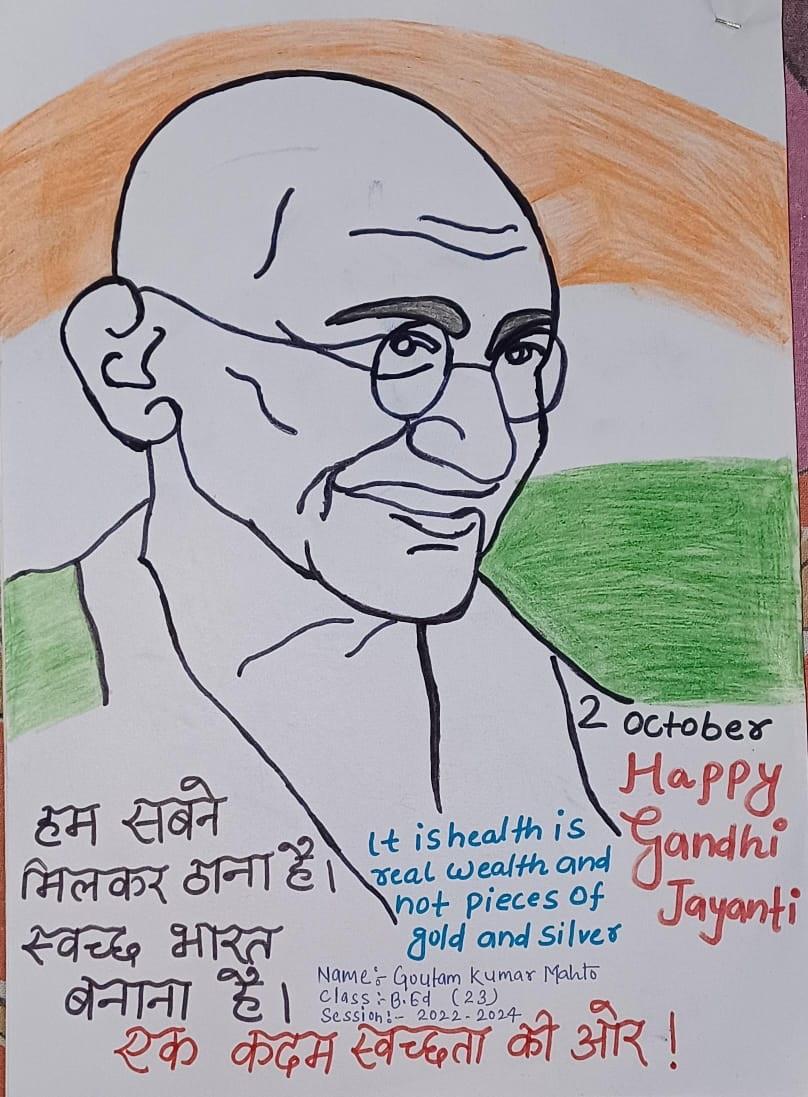 2 October
Happy
Gandhi
Jayanti
हम सबने
मिलकर ठाना है।
स्वच्छ भारत
बनाना है।
It is health is
real wealth and
not pieces of
gold and silver
Name:- Goutam Kumar Mahto
Class:- B.Ed (23)
Session:- 2022-2024
एक कदम स्वच्छता की ओर!